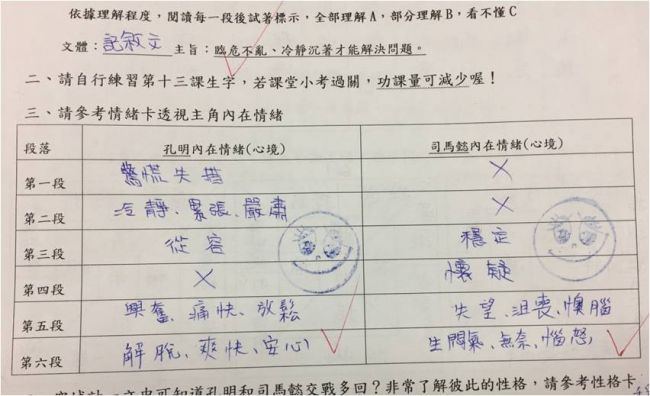 依據理解程度，閱讀每一段後試著標示，全部理解A，部分理解B，看不懂C
文體：記敘文 主旨：臨危不亂、冷靜沉著才能解決問題。
二、請自行練習第十三課生字，若課堂小考過關，功課量可減少喔！
三、請參考情緒卡透視主角內在情緒
段落 孔明內在情緒(心境) 司馬懿內在情緒(心境)
第一段 驚慌失措 ×
第二段 冷靜、緊張、嚴肅 ×
第三段 從容 穩定
第四段 × 懷疑
第五段 興奮、痛快、放鬆 失望、沮喪、懊腦
第六段 解脫、爽快、安心 生悶氣、無奈、惱怒
文中可知道孔明和司馬懿交戰多回？非常了解彼此的性格，請參考性格卡